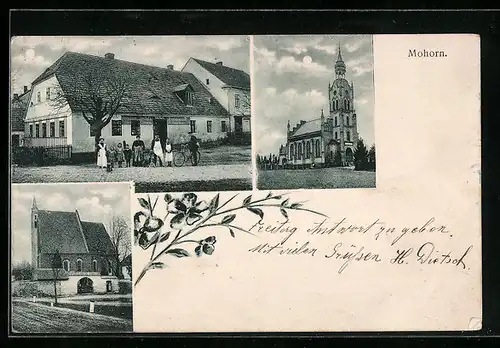 Mohorn.
Freitag Antwort zu geben,
Mit vielen Grüßen H. Dietsch